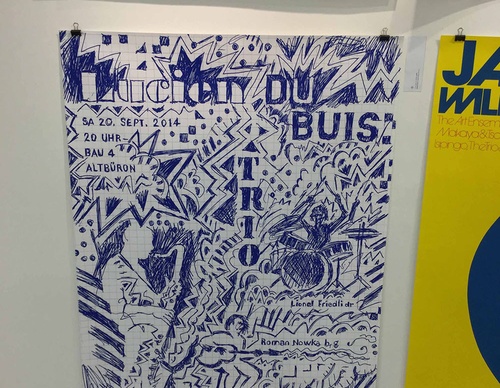 Lucien DU
BUIS
TRIO
SA 20. SEPT. 2014
20 UHR
BAU 4
ALTBÜRON
Lionel Friedli dr
Roman Nowka b, g
JA
The Art Ensem
Makaya & B